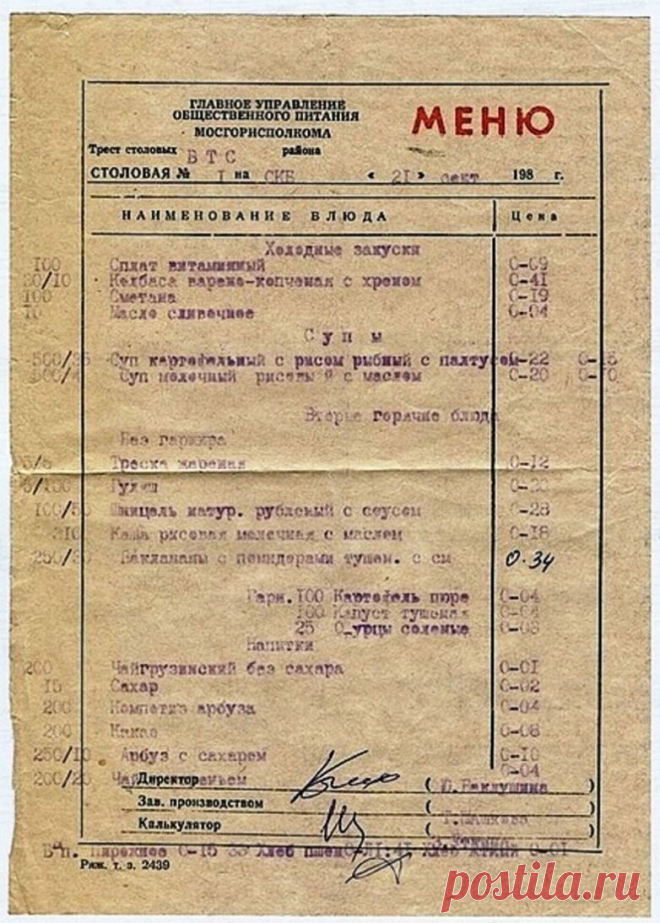 ГЛАВНОЕ УПРАВЛЕНИЕ
ОБЩЕСТВЕННОГО ПИТАНИЯ
МОСГОРИСПОЛКОМА
МЕНЮ
Трест столовых ВТС района
СТОЛОВАЯ № I на СКБ « 21 » сент 198 г.
НАИМЕНОВАНИЕ БЛЮДА Цена
Холодные закуски
100 Сплат витаминный 0-09
30/10 Колбаса варено-копченая с хреном 0-41
100 Сметана 0-19
10 Масло сливочное 0-04
Супы
500/35 Суп картофельный с рисом рыбный с палтусом-22 0-18
Суп молочный рисовый с маслом 0-20 0-10
Вторые горячие блюда
Без гарнира
Треска жареная 0-12
Гуляш
100/50 Шницель натур. рубленый с соусом 0-28
310 Каша рисовая молочная с маслом 0-18
250/30 Баклапаны с помидорами тушен. с см 0.34
Гарн. 100 Картофель пюре 0-04
100 Капуст тушеная 0-04
25 О урцы соленые 0-03
Напитки
200 Чайгрузинский без сахара 0-01
15 Сахар 0-02
200 Компотиз арбуза 0-04
200 Какао 0-08
250/10 Арбуз с сахаром 0-10
200/25 Чай 0-04
Директор ( Ю.Баклушина )
Зав. производством ( )
Калькулятор ( )
Пирожное 0-15 33 Хлеб пшен 0-01
Ряж. т. з. 2439
postila.ru